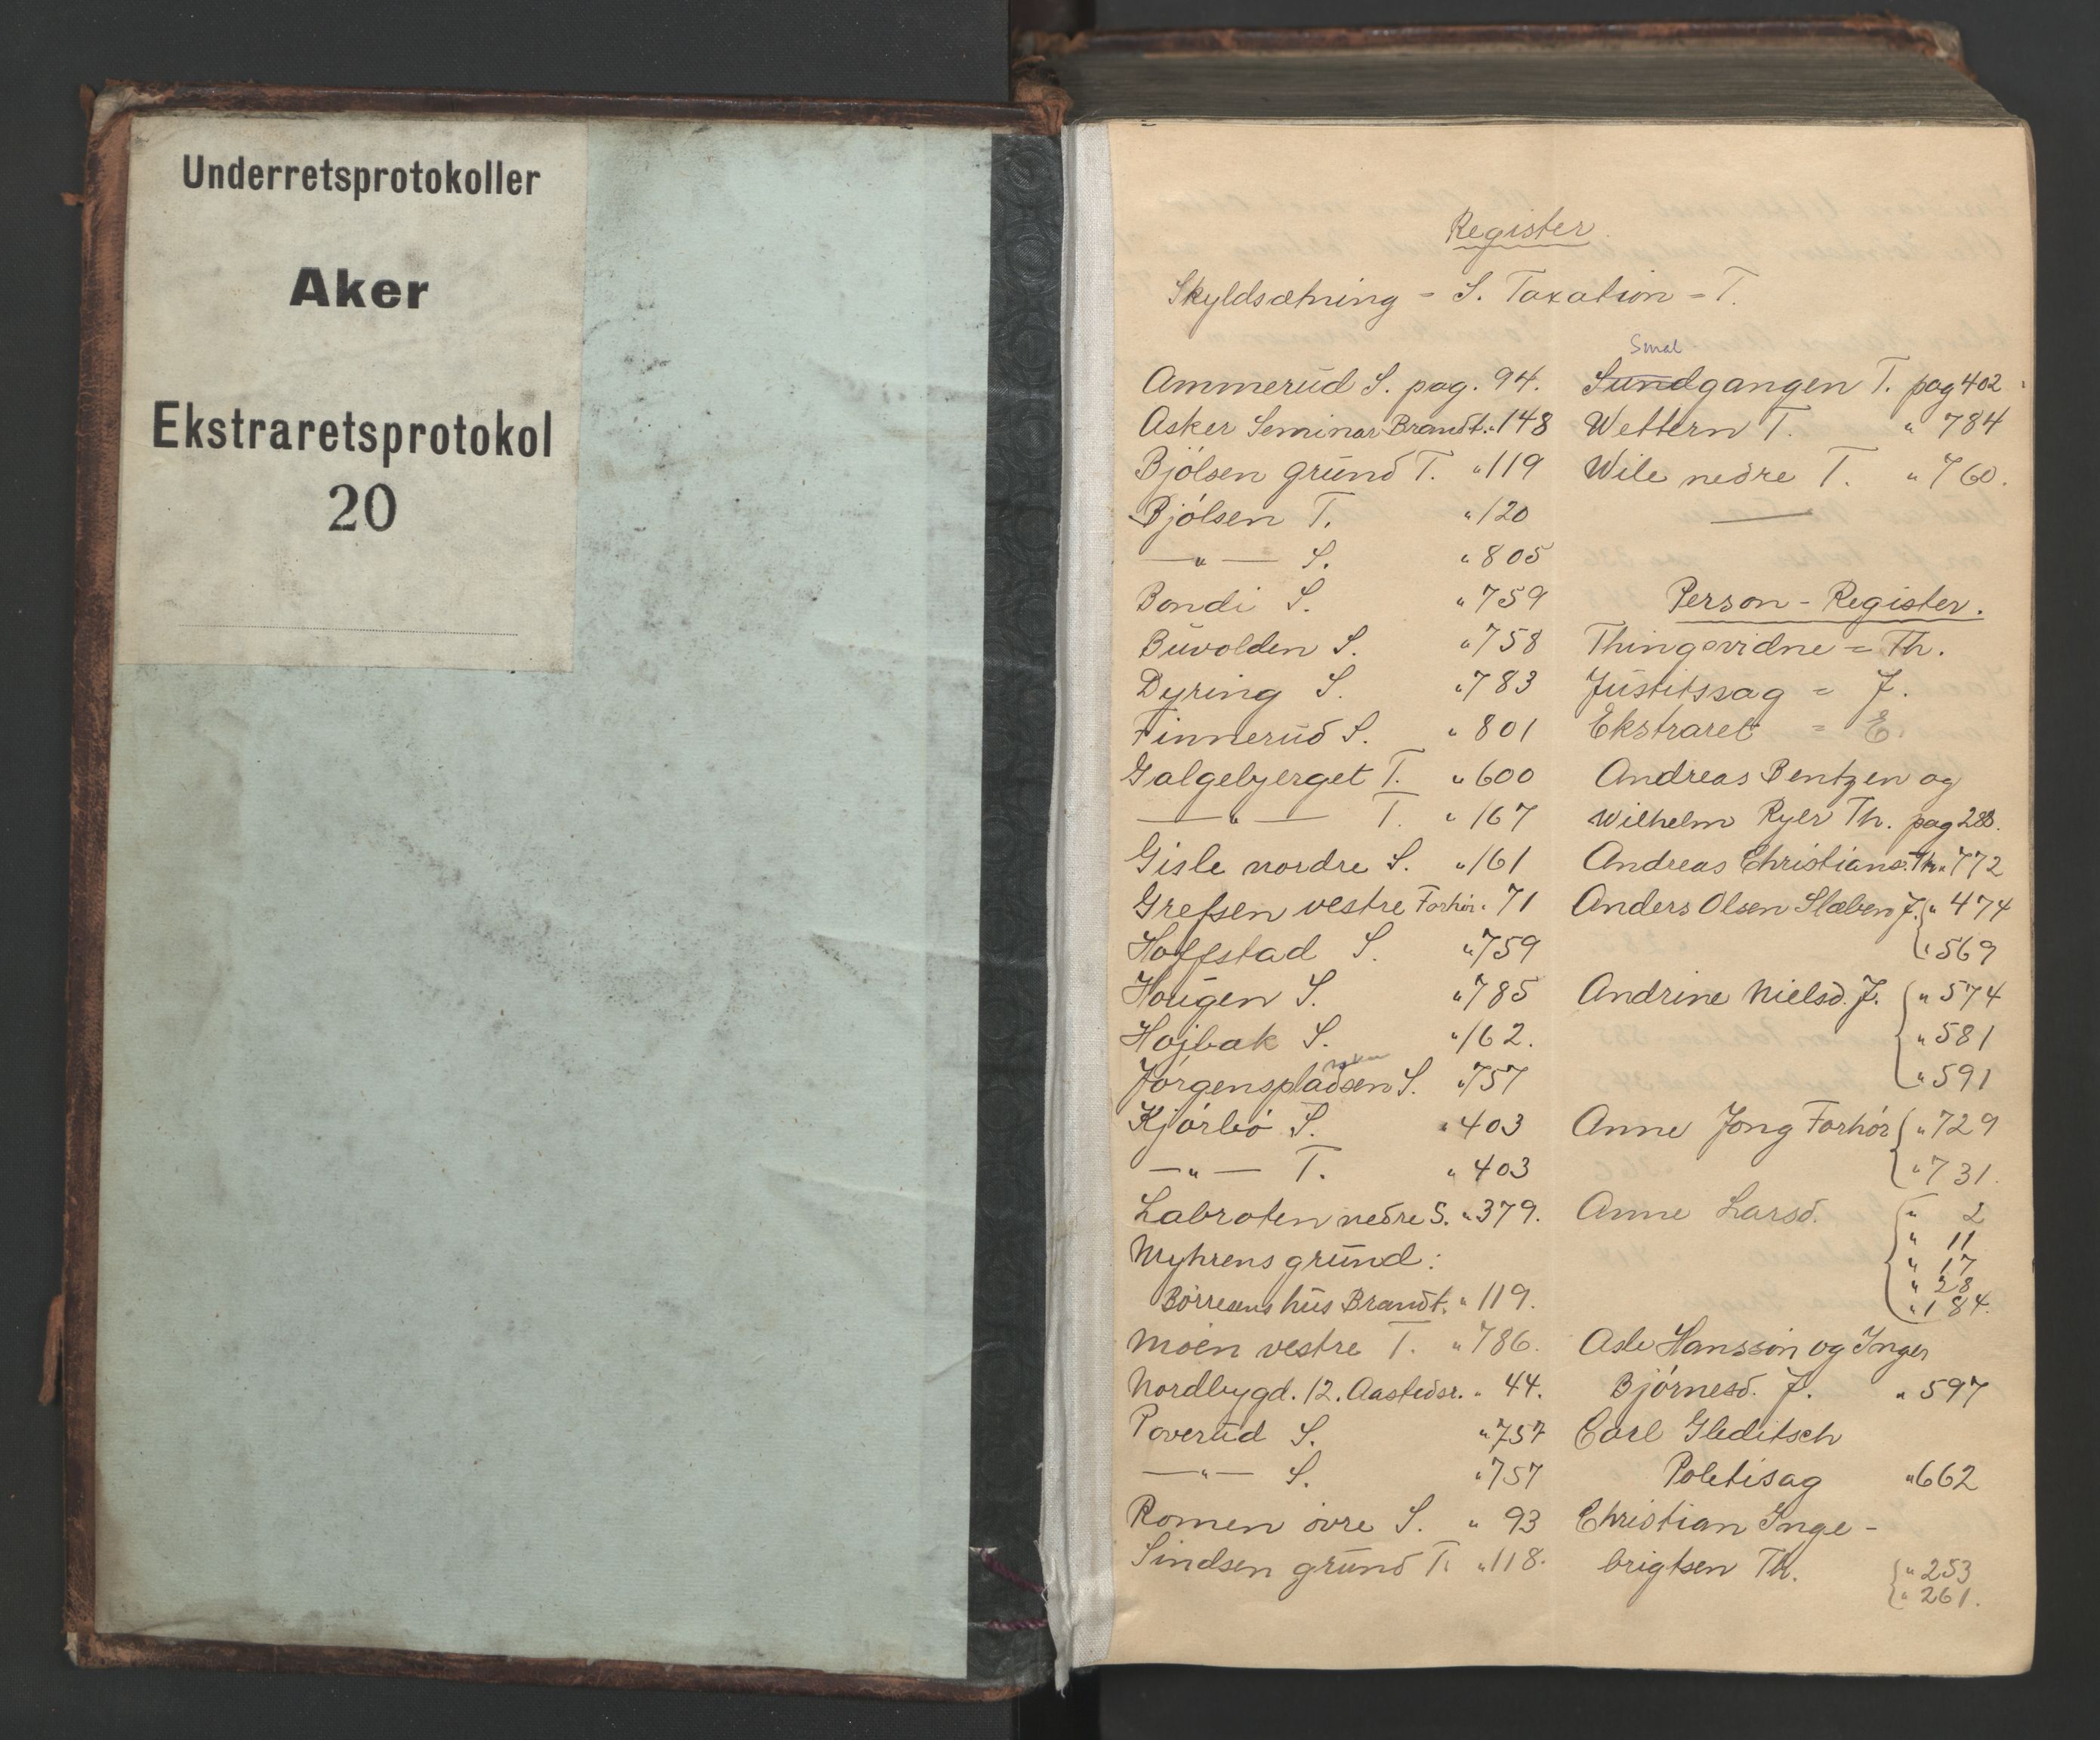 Underretsprotokoller
Aker
Ekstraretsprotokol
20
Register.
Skyldsætning = S. Taxation = T.
Ammerud S. pag. 94.
Asker Seminar Brandt. " 148
Bjólsen grund T. " 119
Bjólsen T. " 120
— " — S. " 805
Bondi S. " 759
Buvolden S. " 758
Dyring S. " 783
Finnerud S. " 801
Galgebjerget T. " 600
— " — T. " 167
Gisle nordre S. " 161
Grefsen vestre Forhór " 71
Hoffstad S. " 759
Hougen S. " 785
Hojbak S. " 162.
Jórgenspladsen S. " 757
Kjórbó S. " 403
— " — T. " 403
Labroten nedre S. " 379.
Myhrens grund:
Bórresens hus Brandt. " 119.
Moen vestre T. " 786.
Nordbygd. 12. Aastedsr. " 44.
Poverud S. " 757
— " — S. " 757
Romen óvre S. " 93
Sindsen grund T. " 118.
Smal
Sundgangen T. pag 402
Wettern T. " 784
Wile nedre T. " 760.
Person-Register.
Thingsvidne = Th.
Justitssag = J.
Ekstraret = E.
Andreas Bentzen og
Wilhelm Ryer Th. pag 288.
Andreas Christians. Th. " 772
Anders Olsen Slæben J. " 474
" 569
Andrine Nielsd. J. " 574
" 581
" 591
Anne Jong Forhór " 729
" 731.
Anne Larsd. " 2
" 11
" 17
" 28
" 184.
Asle Hanssón og Inger
Bjórnesd. J. " 597
Carl Gleditsch
Politisag " 662
Christian Inge-
brigtsen Th. " 253
" 261.